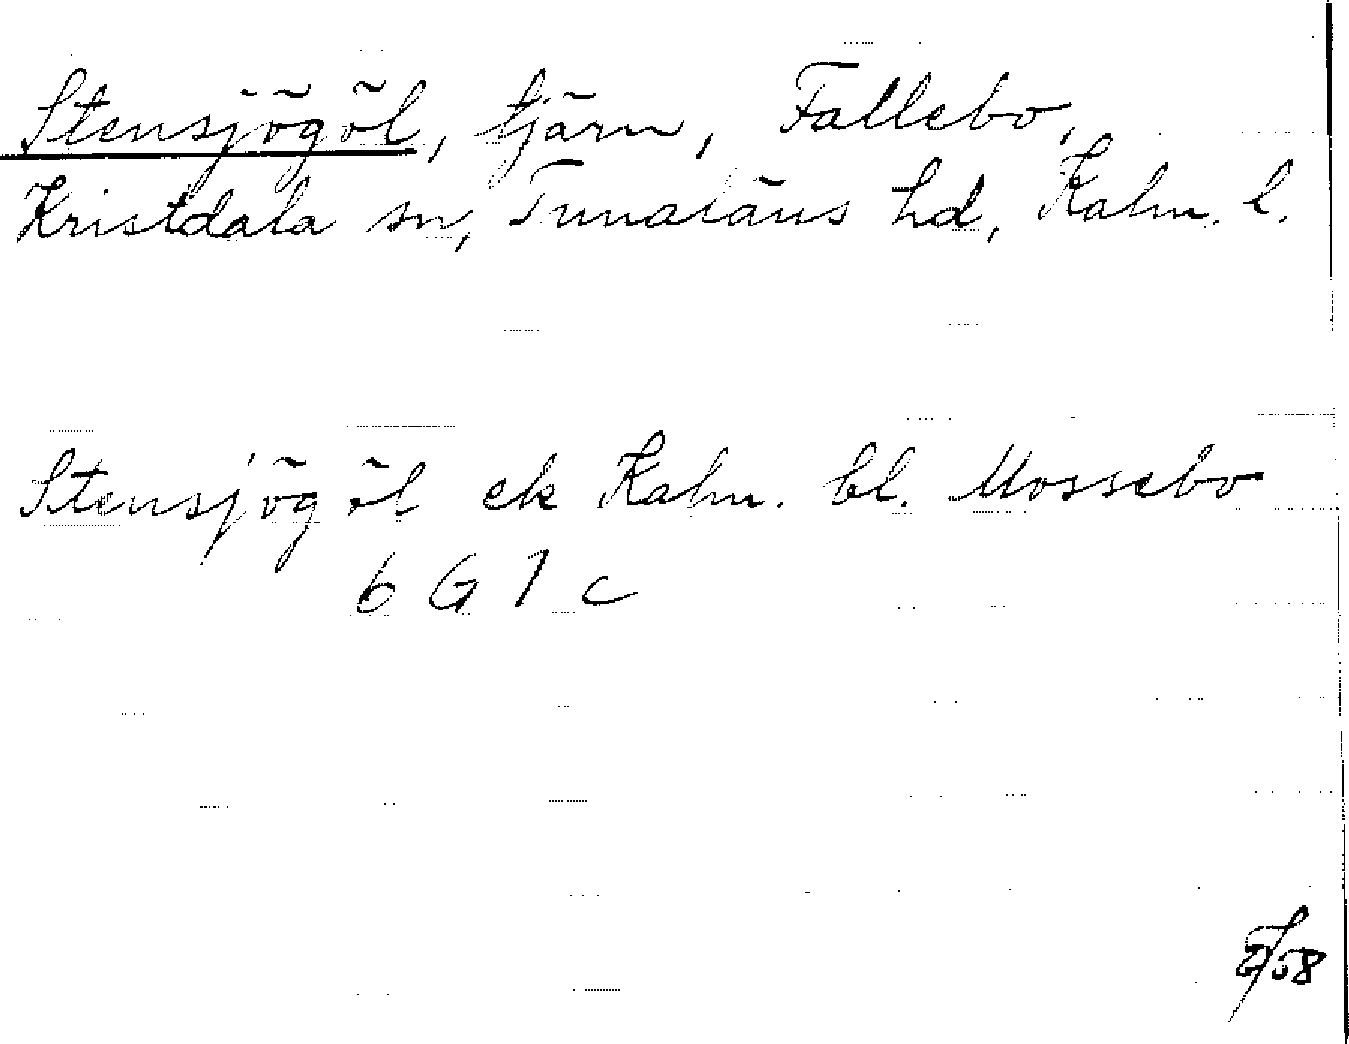 Stensjögöl, tjärn, Fallebo,
Kristdala sn, Tunaläns hd, Kalm. l.
Stensjögöl ek Kalm. bl. Mossebo
6 G 1 c